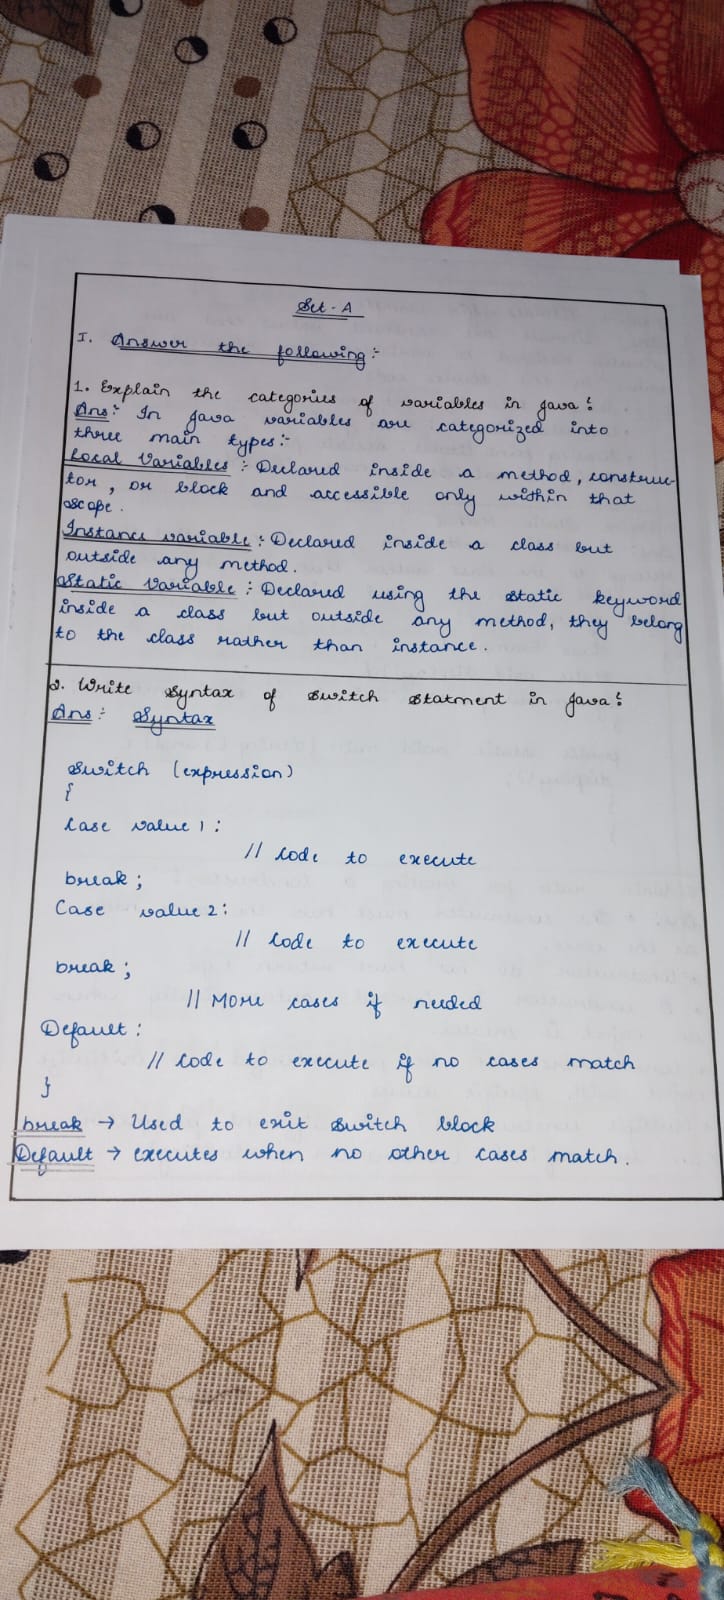 Set - A
I. Answer the following :-
1. Explain the categories of variables in Java?
Ans :- In Java variables are categorized into
three main types :-
Local Variables :- Declared inside a method, construc-
tor, or block and accessible only within that
scope.
Instance variable :- Declared inside a class but
outside any method.
Static Variable :- Declared using the static keyword
inside a class but outside any method, they belong
to the class rather than instance.
2. Write Syntax of Switch Statment in Java?
Ans :- Syntax
Switch (expression)
{
Case value 1 :
// Code to execute
break ;
Case value 2 :
// Code to execute
break ;
// More cases if needed
Default :
// Code to execute if no cases match
}
break → Used to exit Switch block
Default → executes when no other cases match.